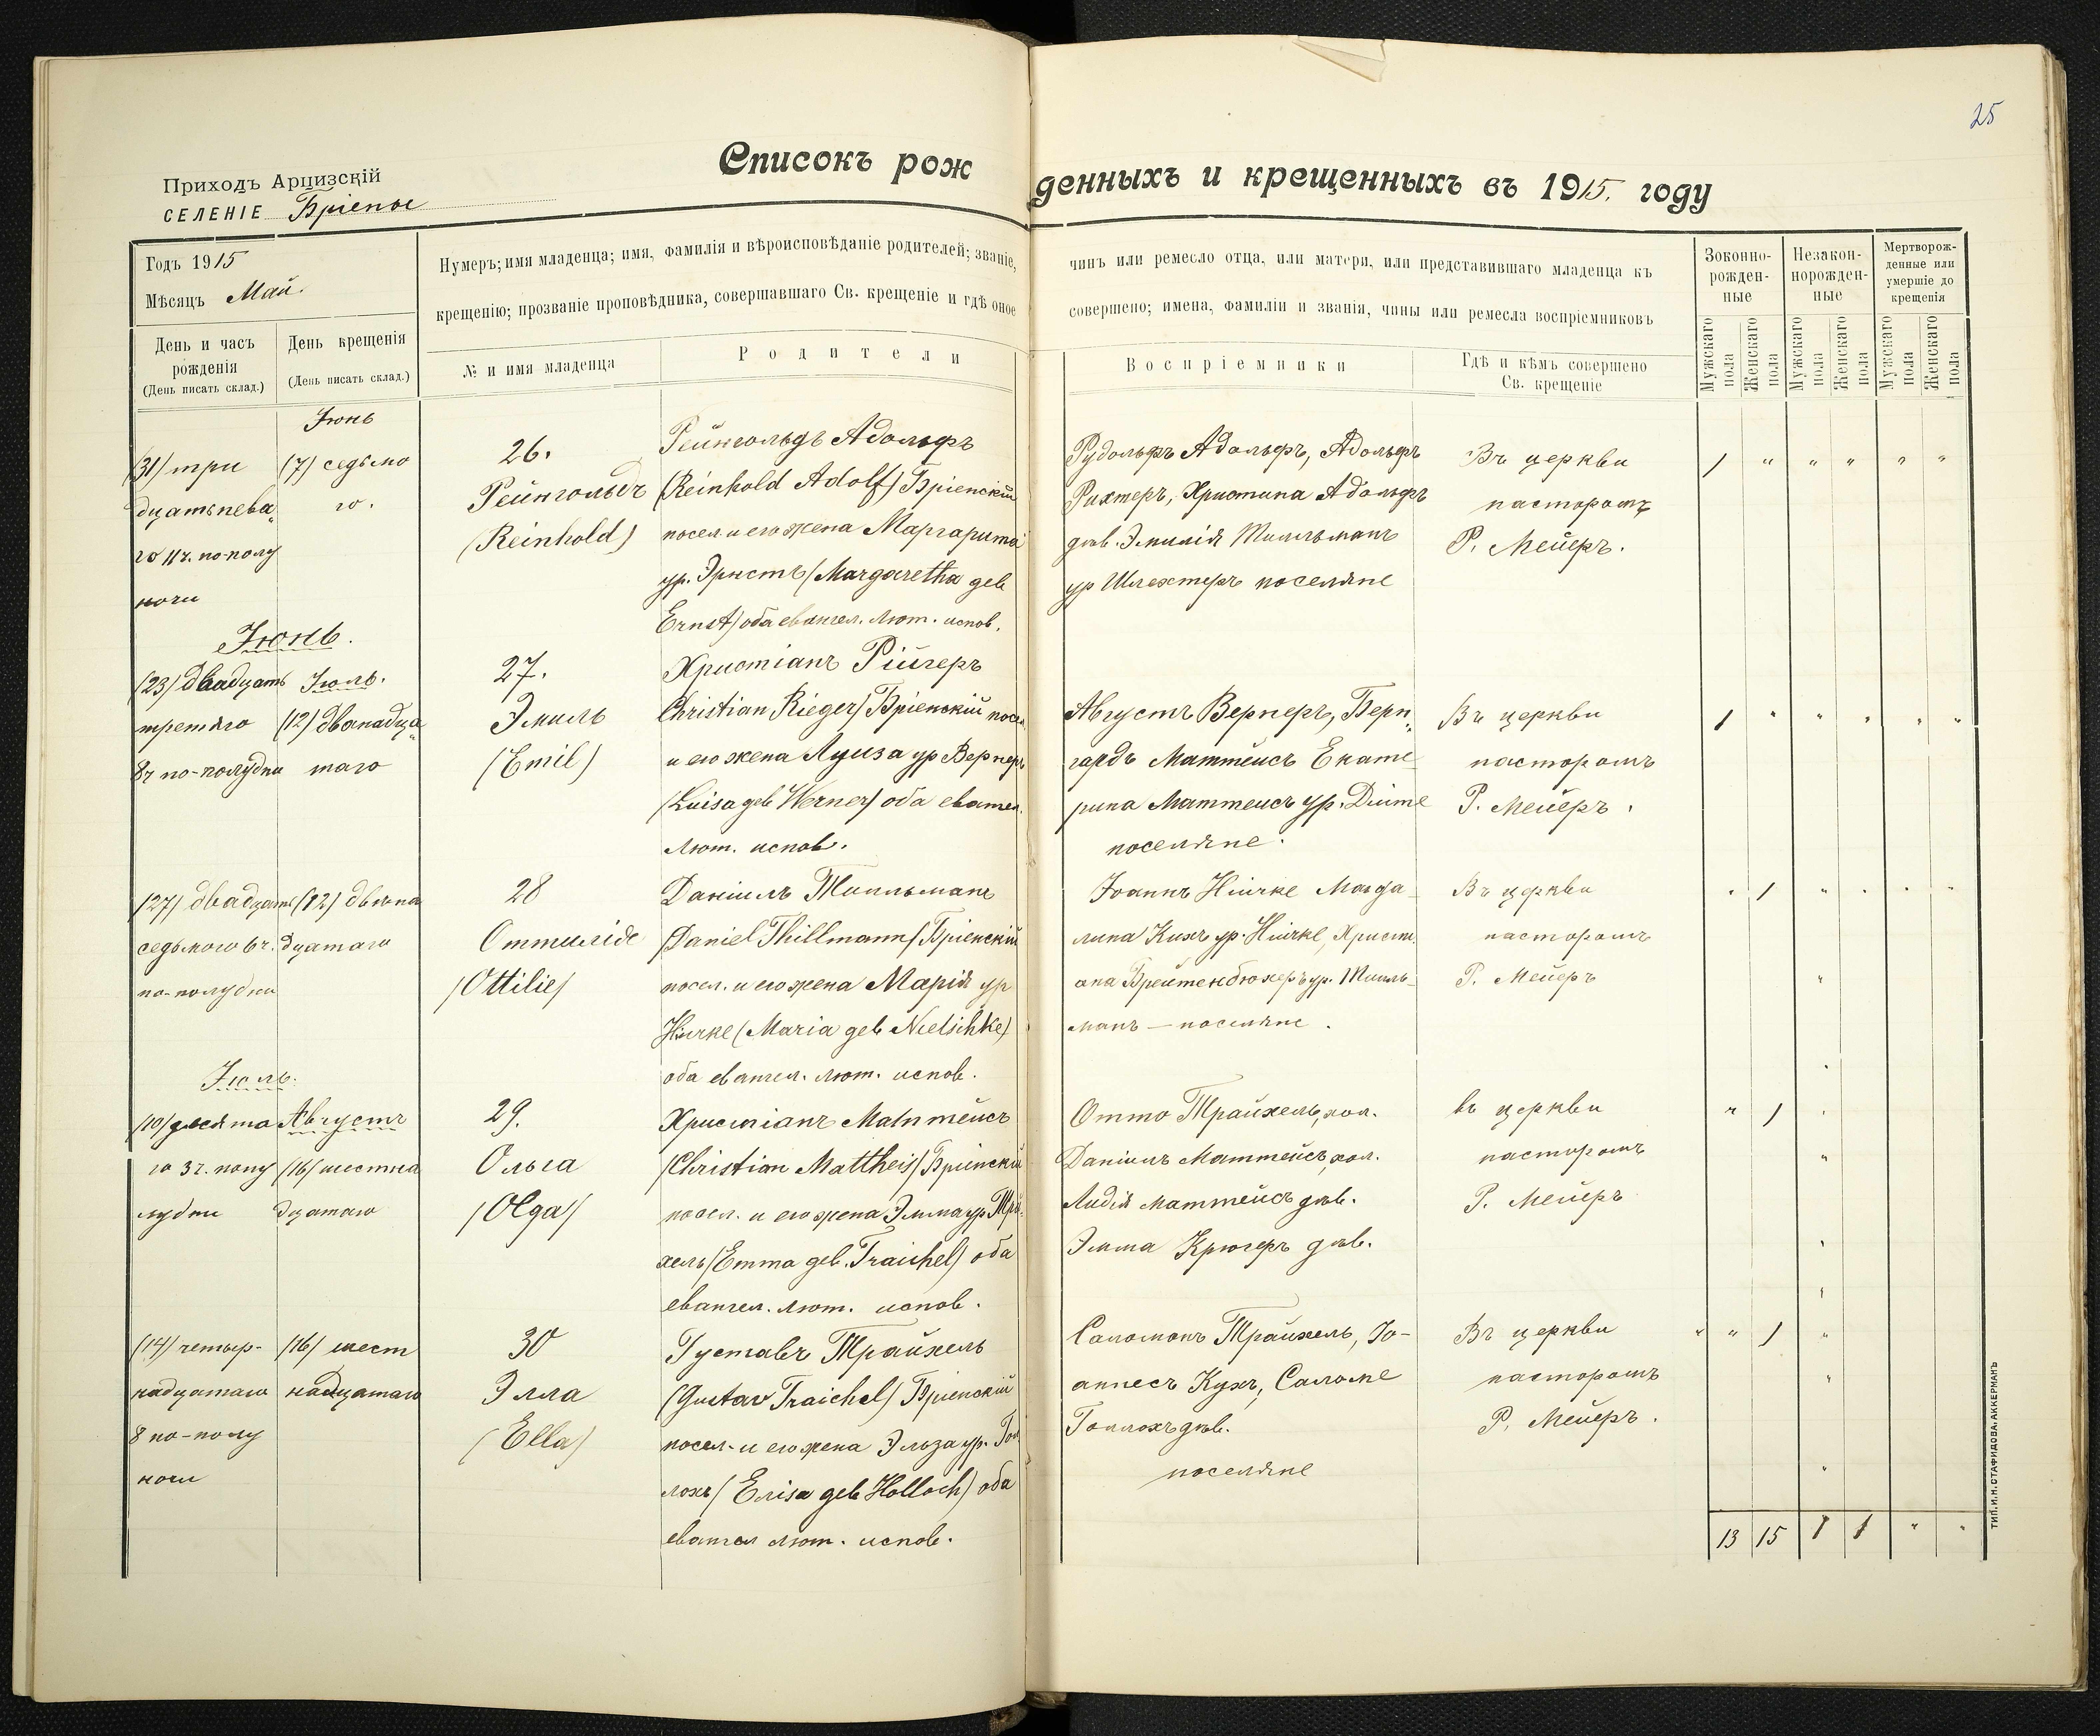 25
Списокъ рожденныхъ и крещенныхъ въ 1915. году
Приходъ Арцизскій
СЕЛЕНІЕ Бріенъ
Годъ 1915
Мѣсяцъ Май.
Нумеръ; имя младенца; имя, фамилія и вѣроисповѣданіе родителей; званіе, чинъ или ремесло отца, или матери, или представившаго младенца къ
крещенію; прозваніе проповѣдника, совершавшаго Св. крещеніе и гдѣ оное совершено; имена, фамиліи и званія, чины или ремесла воспріемниковъ
День и часъ
рожденія
(День писать склад.)
День крещенія
(День писать склад.)
№ и имя младенца
Родители
Воспріемники
Гдѣ и кѣмъ совершено
Св. крещеніе
Законно-
рожден-
ные
Незакон-
норожден-
ные
Мертворож-
денные или
умершіе до
крещенія
Мужскаго пола
Женскаго пола
Мужскаго пола
Женскаго пола
Мужскаго пола
Женскаго пола
(31) три
дцать перва
го 11 ч. по полу
ночи
Іюнь
(7) седьмо
го.
26.
Рейнгольдъ
(Reinhold)
Рейнгольдъ Адольфъ
(Reinhold Adolf) Бріенскій
посел. и его жена Маргарита
ур. Эрнстъ (Margaretha geb
Ernst) оба евангел. лют. испов.
Рудольфъ Адольфъ, Адольфъ
Рихтеръ, Христина Адольфъ
дѣв. Эмилія Тилльманъ
ур Шлехтеръ поселяне
Въ церкви
пасторомъ
Р. Мейеръ.
1 " " " " "
Іюнь.
(23) двадцать
третяго
8 ч по-полудни
Іюль.
(12) двѣнадца
таго
27.
Эмиль
(Emil)
Христіанъ Рійгеръ
Christian Rieger) Бріенскій посел
и его жена Луиза ур Вернеръ
(Luisa geb Werner) оба евангел.
лют. испов.
Августъ Вернеръ, Берн
гардъ Маттейсъ Екате
рина Маттейсъ ур. Дите
поселяне.
Въ церкви
пасторомъ
Р. Мейеръ.
1 " " " " "
(27) двадцать
седьмого 6 ч.
по-полудни
(12) двѣна
дцатаго
28
Оттиліе
(Ottilie)
Даніилъ Тилльманъ
(Daniel Thillmann) Бріенскій
посел. и его жена Марія ур
Ничке (Maria geb Nietschke)
оба евангел. лют. испов.
Іоаннъ Ничке Магда
лина Кихъ ур. Ничке, Христи
ана Брейтенбюхеръ ур. Тилль-
манъ — поселяне.
Въ церкви
пасторомъ
Р. Мейеръ
" 1 " " " "
Іюль.
(10) десята
го 3 ч. пополу
лудни
Августъ
(16) шестна
дцатаго
29.
Ольга
(Olga)
Христіанъ Маттейсъ
(Christian Mattheis) Бріенскій
посел. и его жена Эмма ур Трай
хель (Emma geb. Traichel) оба
евангел. лют. испов.
Отто Трайхель, хол.
Даніилъ Маттейсъ, хол.
Лидія Маттейсъ дѣв.
Эмма Крюгеръ дѣв.
въ церкви
пасторомъ
Р. Мейеръ
" 1 "
(14) четыр-
надцатаго
8 по-полу
ночи
(16) шест
надцатаго
30
Элла
(Ella)
Густавъ Трайхель
(Gustav Traichel) Бріенскій
посел. и его жена Эльза ур. Гол
лохъ (Elisa geb Holloch) оба
евангел лют. испов.
Саломонъ Трайхель, Іо-
аннесъ Кухъ, Саломе
Голлохъ дѣв.
поселяне
Въ церкви
пасторомъ
Р. Мейеръ.
" " 1 "
13 15 1 1 " "
ТИП. И. Н. СТАФИДОВА. АККЕРМАНЪ